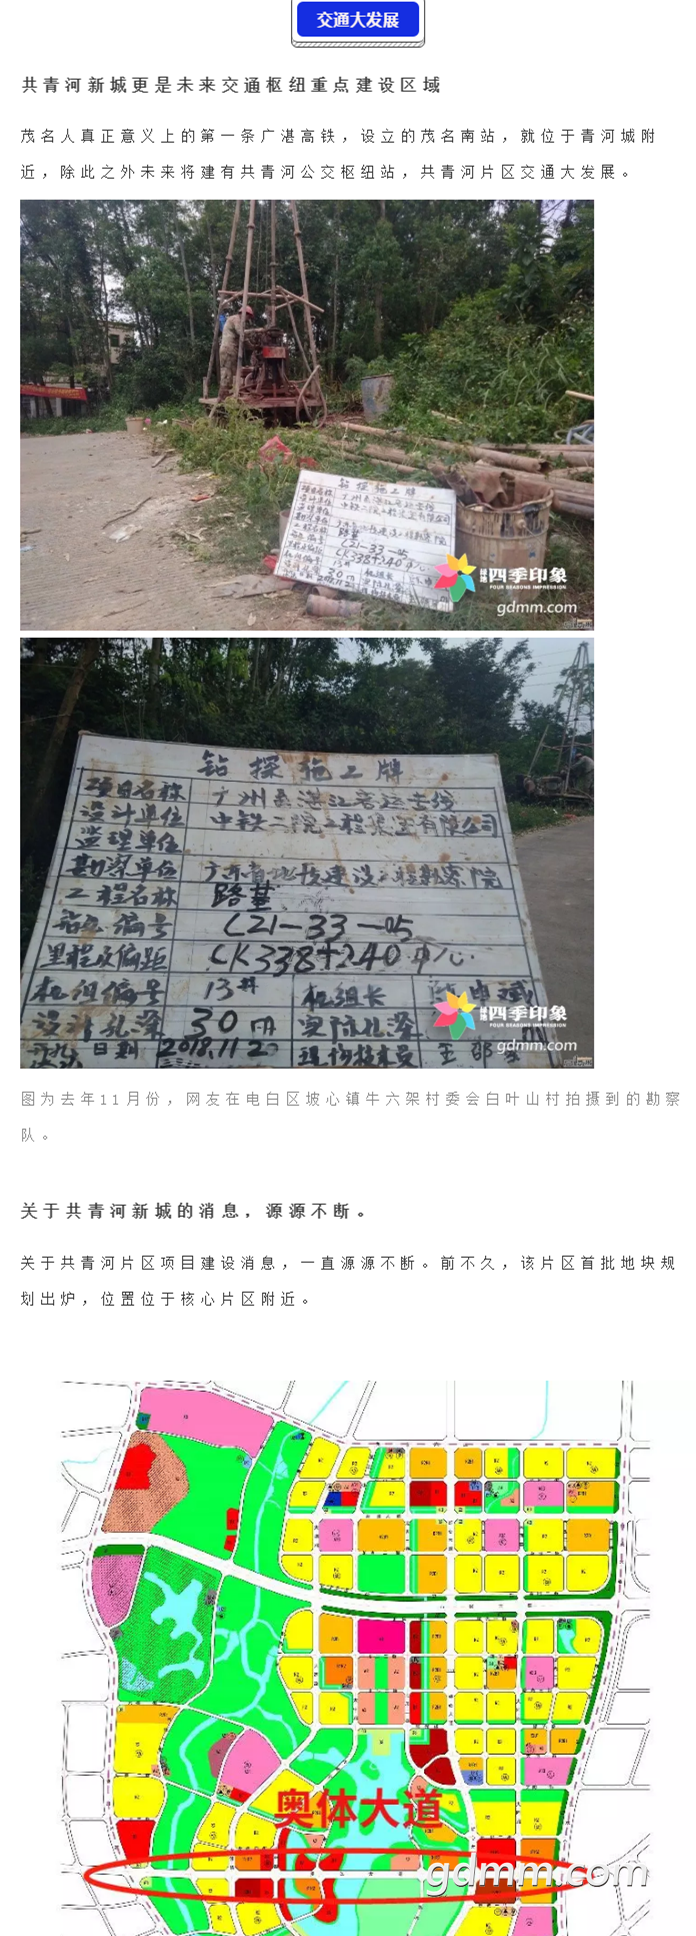 交通大发展
共青河新城更是未来交通枢纽重点建设区域
茂名人真正意义上的第一条广湛高铁，设立的茂名南站，就位于青河城附
近，除此之外未来将建有共青河公交枢纽站，共青河片区交通大发展。
钻探施工牌
项目名称
设计单位
中铁二院工程集团有限公司
勘察单位
工程名称 路基
C21-33-05
CK338+240
13#
30m
绿地 四季印象
FOUR SEASONS IMPRESSION
gdmm.com
钻探施工牌
项目名称 广州至湛江客运专线
设计单位 中铁二院工程集团有限公司
监理单位
勘察单位 广东省地质建设工程勘察院
工程名称 路基
钻孔编号 C21-33-05
里程及偏距 CK338+240 中心
机组编号 13# 机组长
设计孔深 30m 实际孔深
日期 2018.11.2 现场技术员 王邵
绿地 四季印象
FOUR SEASONS IMPRESSION
gdmm.com
图为去年11月份，网友在电白区坡心镇牛六架村委会白叶山村拍摄到的勘察
队。
关于共青河新城的消息，源源不断。
关于共青河片区项目建设消息，一直源源不断。前不久，该片区首批地块规
划出炉，位置位于核心片区附近。
奥体大道
gdmm.com